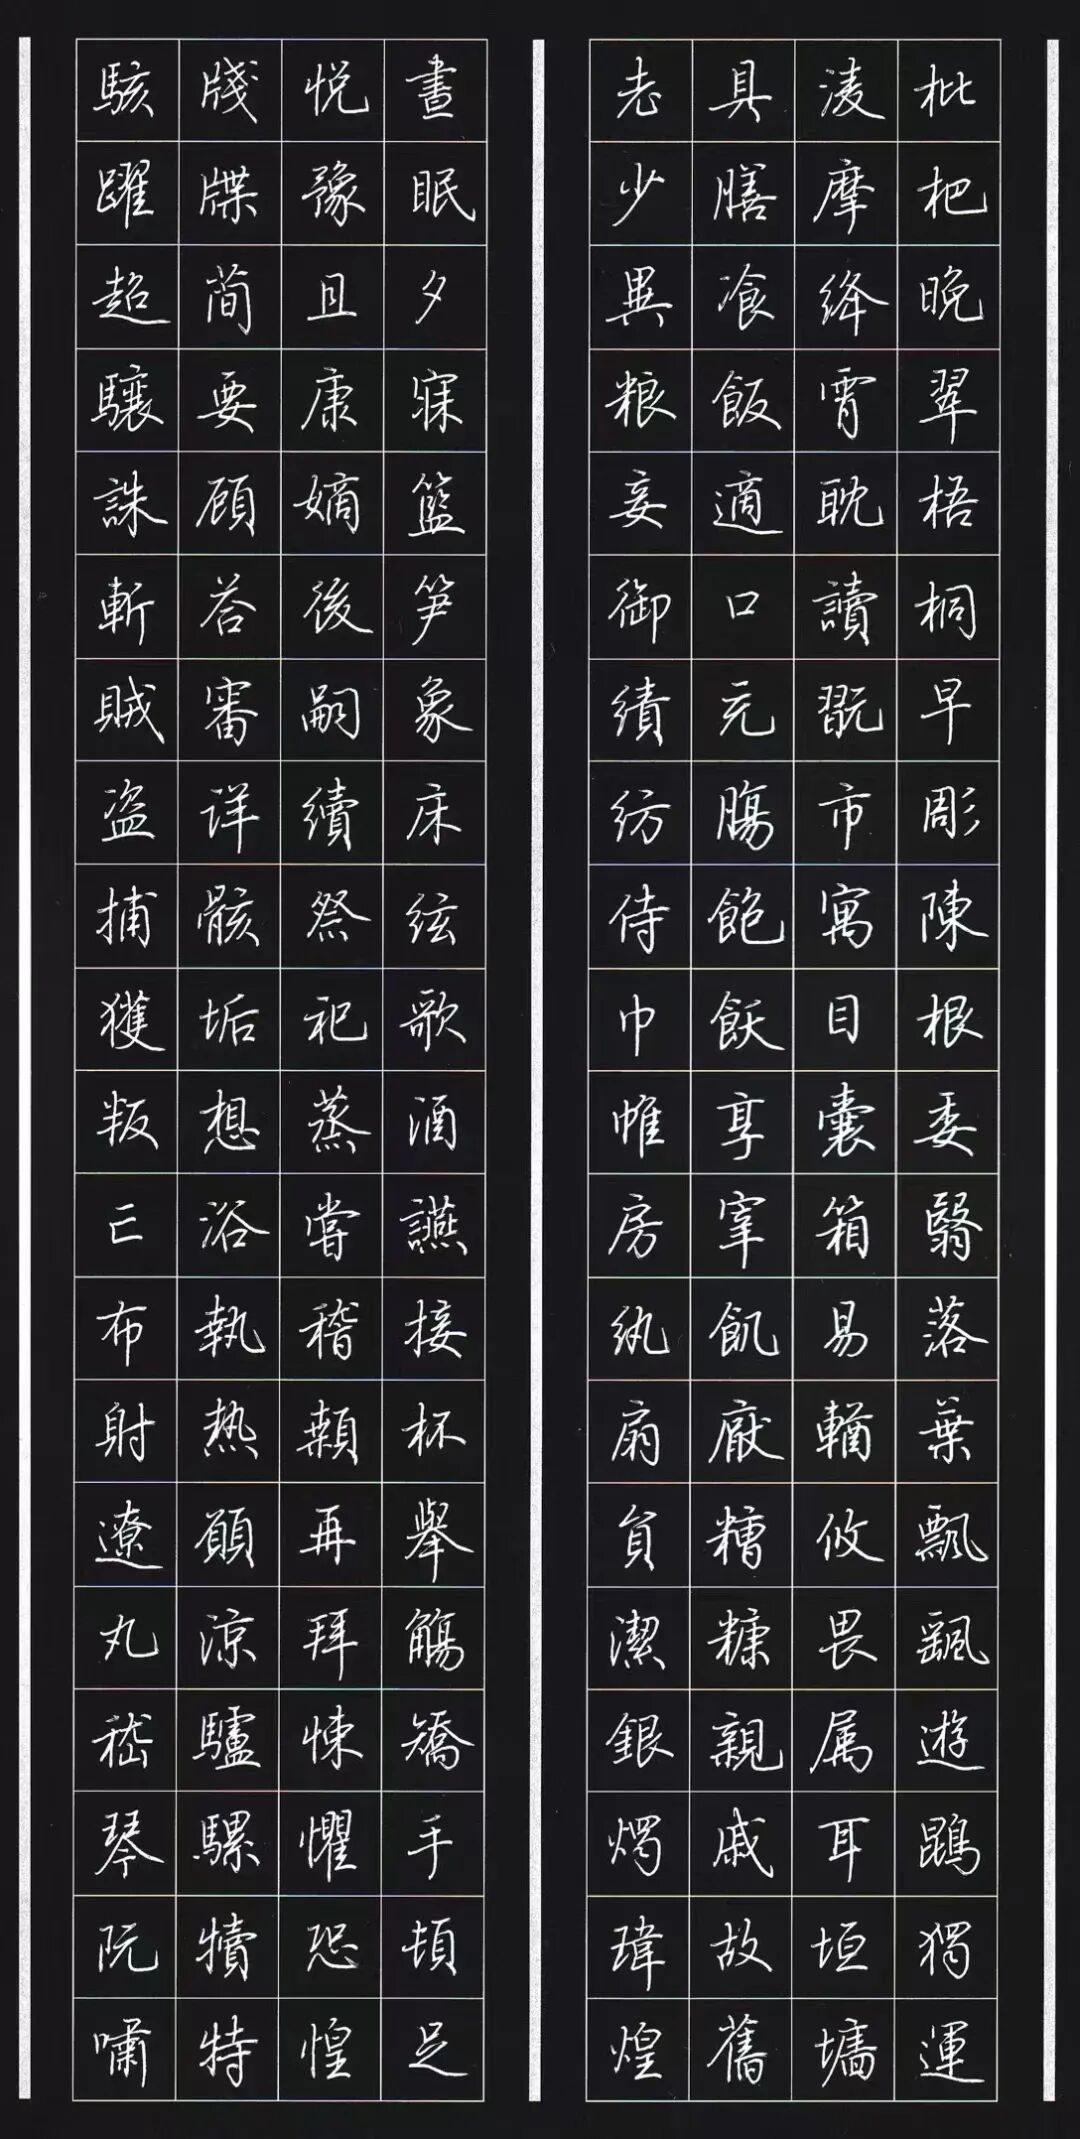 枇杷晚翠梧桐早彫陳根委翳落葉飄飖遊鵾獨運
淩摩絳霄耽讀翫市寓目囊箱易輶攸畏属耳垣墻
具膳飡飯適口充腸飽飫享宰飢厭糟糠親戚故舊
老少異粮妾御績紡侍巾帷房紈扇貟潔銀燭瑋煌
晝眠夕寐籃笋象床絃歌酒讌接杯舉觴矯手頓足
悦豫且康嫡後嗣續祭祀蒸嘗稽顙再拜悚懼恐惶
牋牒簡要顧荅審详骸垢想浴執热願涼驢騾犢特
駭躍超驤誅斬賊盗捕獲叛亡布射遼丸嵇琴阮嘯